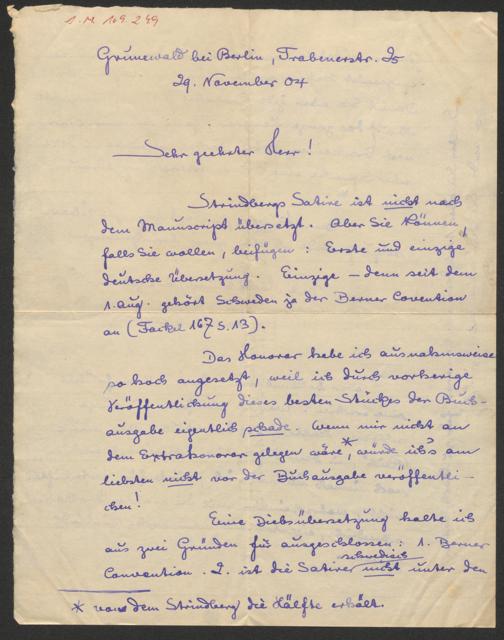 1.N. 169.249
Grunewald bei Berlin, Trabenerstr. 25
29. November 04
Sehr geehrter Herr!
Strindbergs Satire ist nicht nach
dem Manuscript übersetzt. Aber Sie können,
falls Sie wollen, beifügen: Erste und einzige
deutsche Übersetzung. Einzige – denn seit dem
1. Aug. gehört Schweden ja der Berner Convention
an (Fackel 167 S. 13).
Das Honorar habe ich ausnahmsweise
so hoch angesetzt, weil ich durch vorherige
Veröffentlichung dieses besten Stückes der Buch-
ausgabe eigentlich schade. Wenn mir nicht an
dem Extrahonorar gelegen wäre*, würde ich's am
liebsten nicht vor der Buchausgabe veröffentli-
chen!
Eine Diebsübersetzung halte ich
aus zwei Gründen für ausgeschlossen: 1. Berner
Convention. 2. ist die Satire schwedisch nicht unter den
* von dem Strindberg die Hälfte erhält.